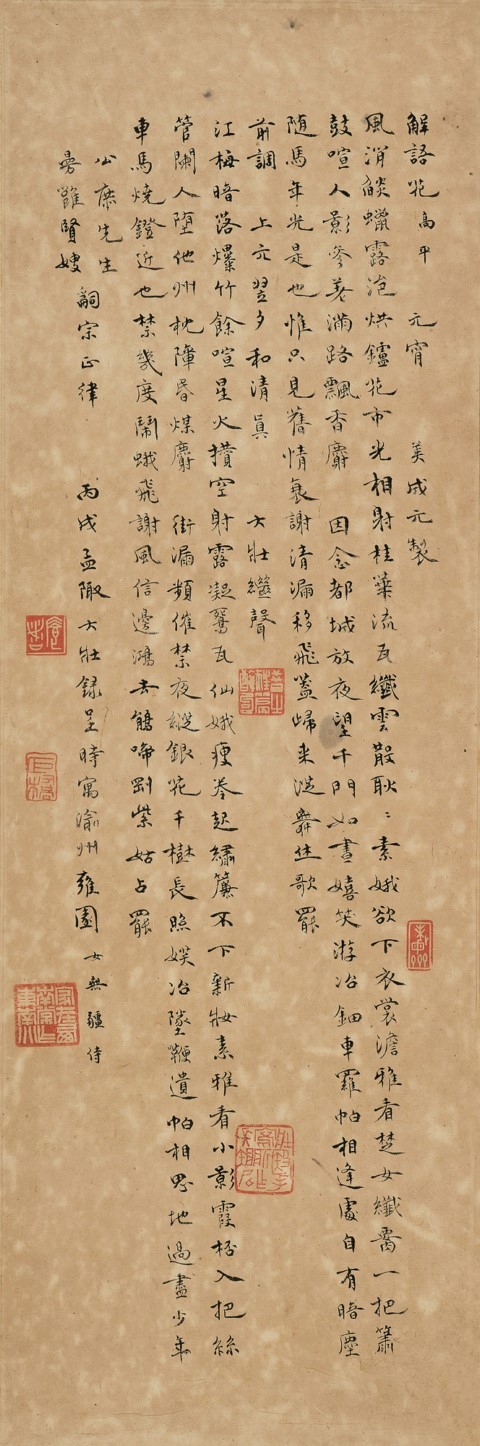 解語花 高平 元宵 美成元製
風消燄蠟露浥烘鑪花市光相射桂華流瓦纖雲散耿〻素娥欲下衣裳澹雅看楚女纖一把簫
鼓喧人影參差滿路飄香麝 因念都城放夜望千門如晝嬉笑游冶鈿車羅帕相逢處自有暗塵
隨馬年光是也惟只見舊情衰謝清漏移飛蓋歸來從舞休歌罷
前調 上元翌夕和清真 大壯繼聲
江梅暗落爆竹餘喧星火攢空射露凝鴛瓦仙娥瘦起繡簾不下新妝素雅看小影霞桮入把絲
管闌人墮他州枕障昏煤麝 街漏頻催禁夜縱銀花千樹長照娛冶墜鞭遺帕相思地過盡少年
車馬燒鐙近也禁幾度鬧蛾飛謝風信邊鴻去鵲啼剛紫姑占罷
公庶先生
曼雛賢嫂
嗣宗正律 丙戌孟陬大壯錄呈時寓渝州雍園 女無疆侍